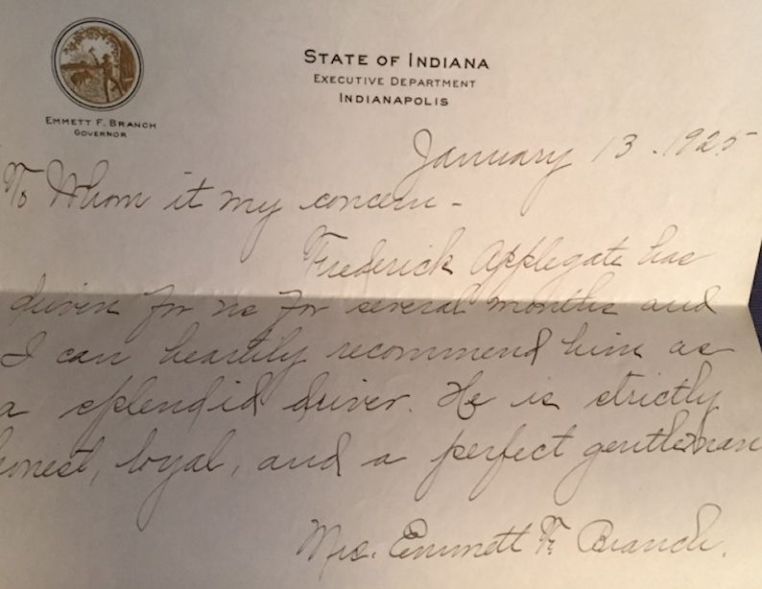 STATE OF INDIANA
EXECUTIVE DEPARTMENT
INDIANAPOLIS
EMMETT F. BRANCH
GOVERNOR
January 13. 1925
To Whom it my concern -
Frederick Applegate has
driven for us for several months and
I can heartily recommend him as
a splendid driver. He is strictly
honest, loyal, and a perfect gentleman
Mrs. Emmett F. Branch.